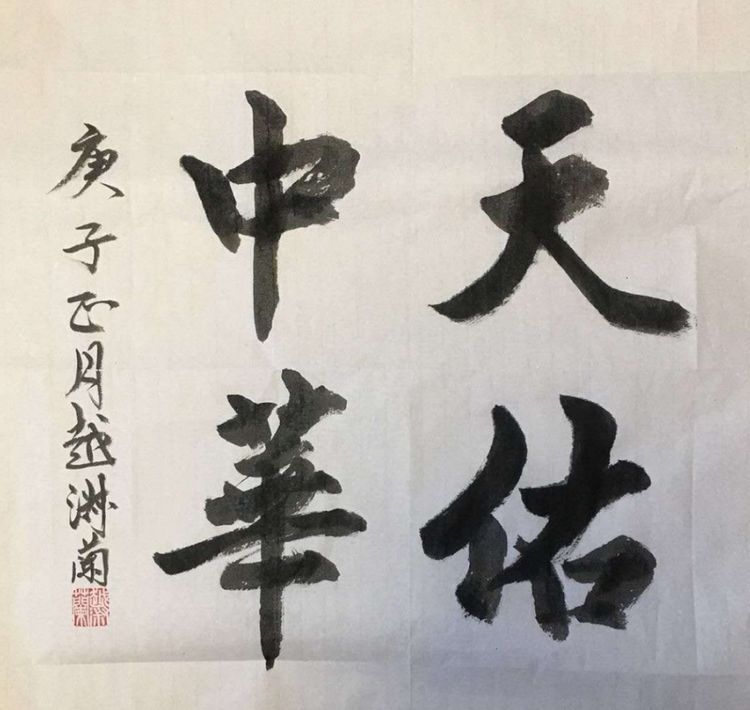 天佑
中華
庚子正月越淋蘭